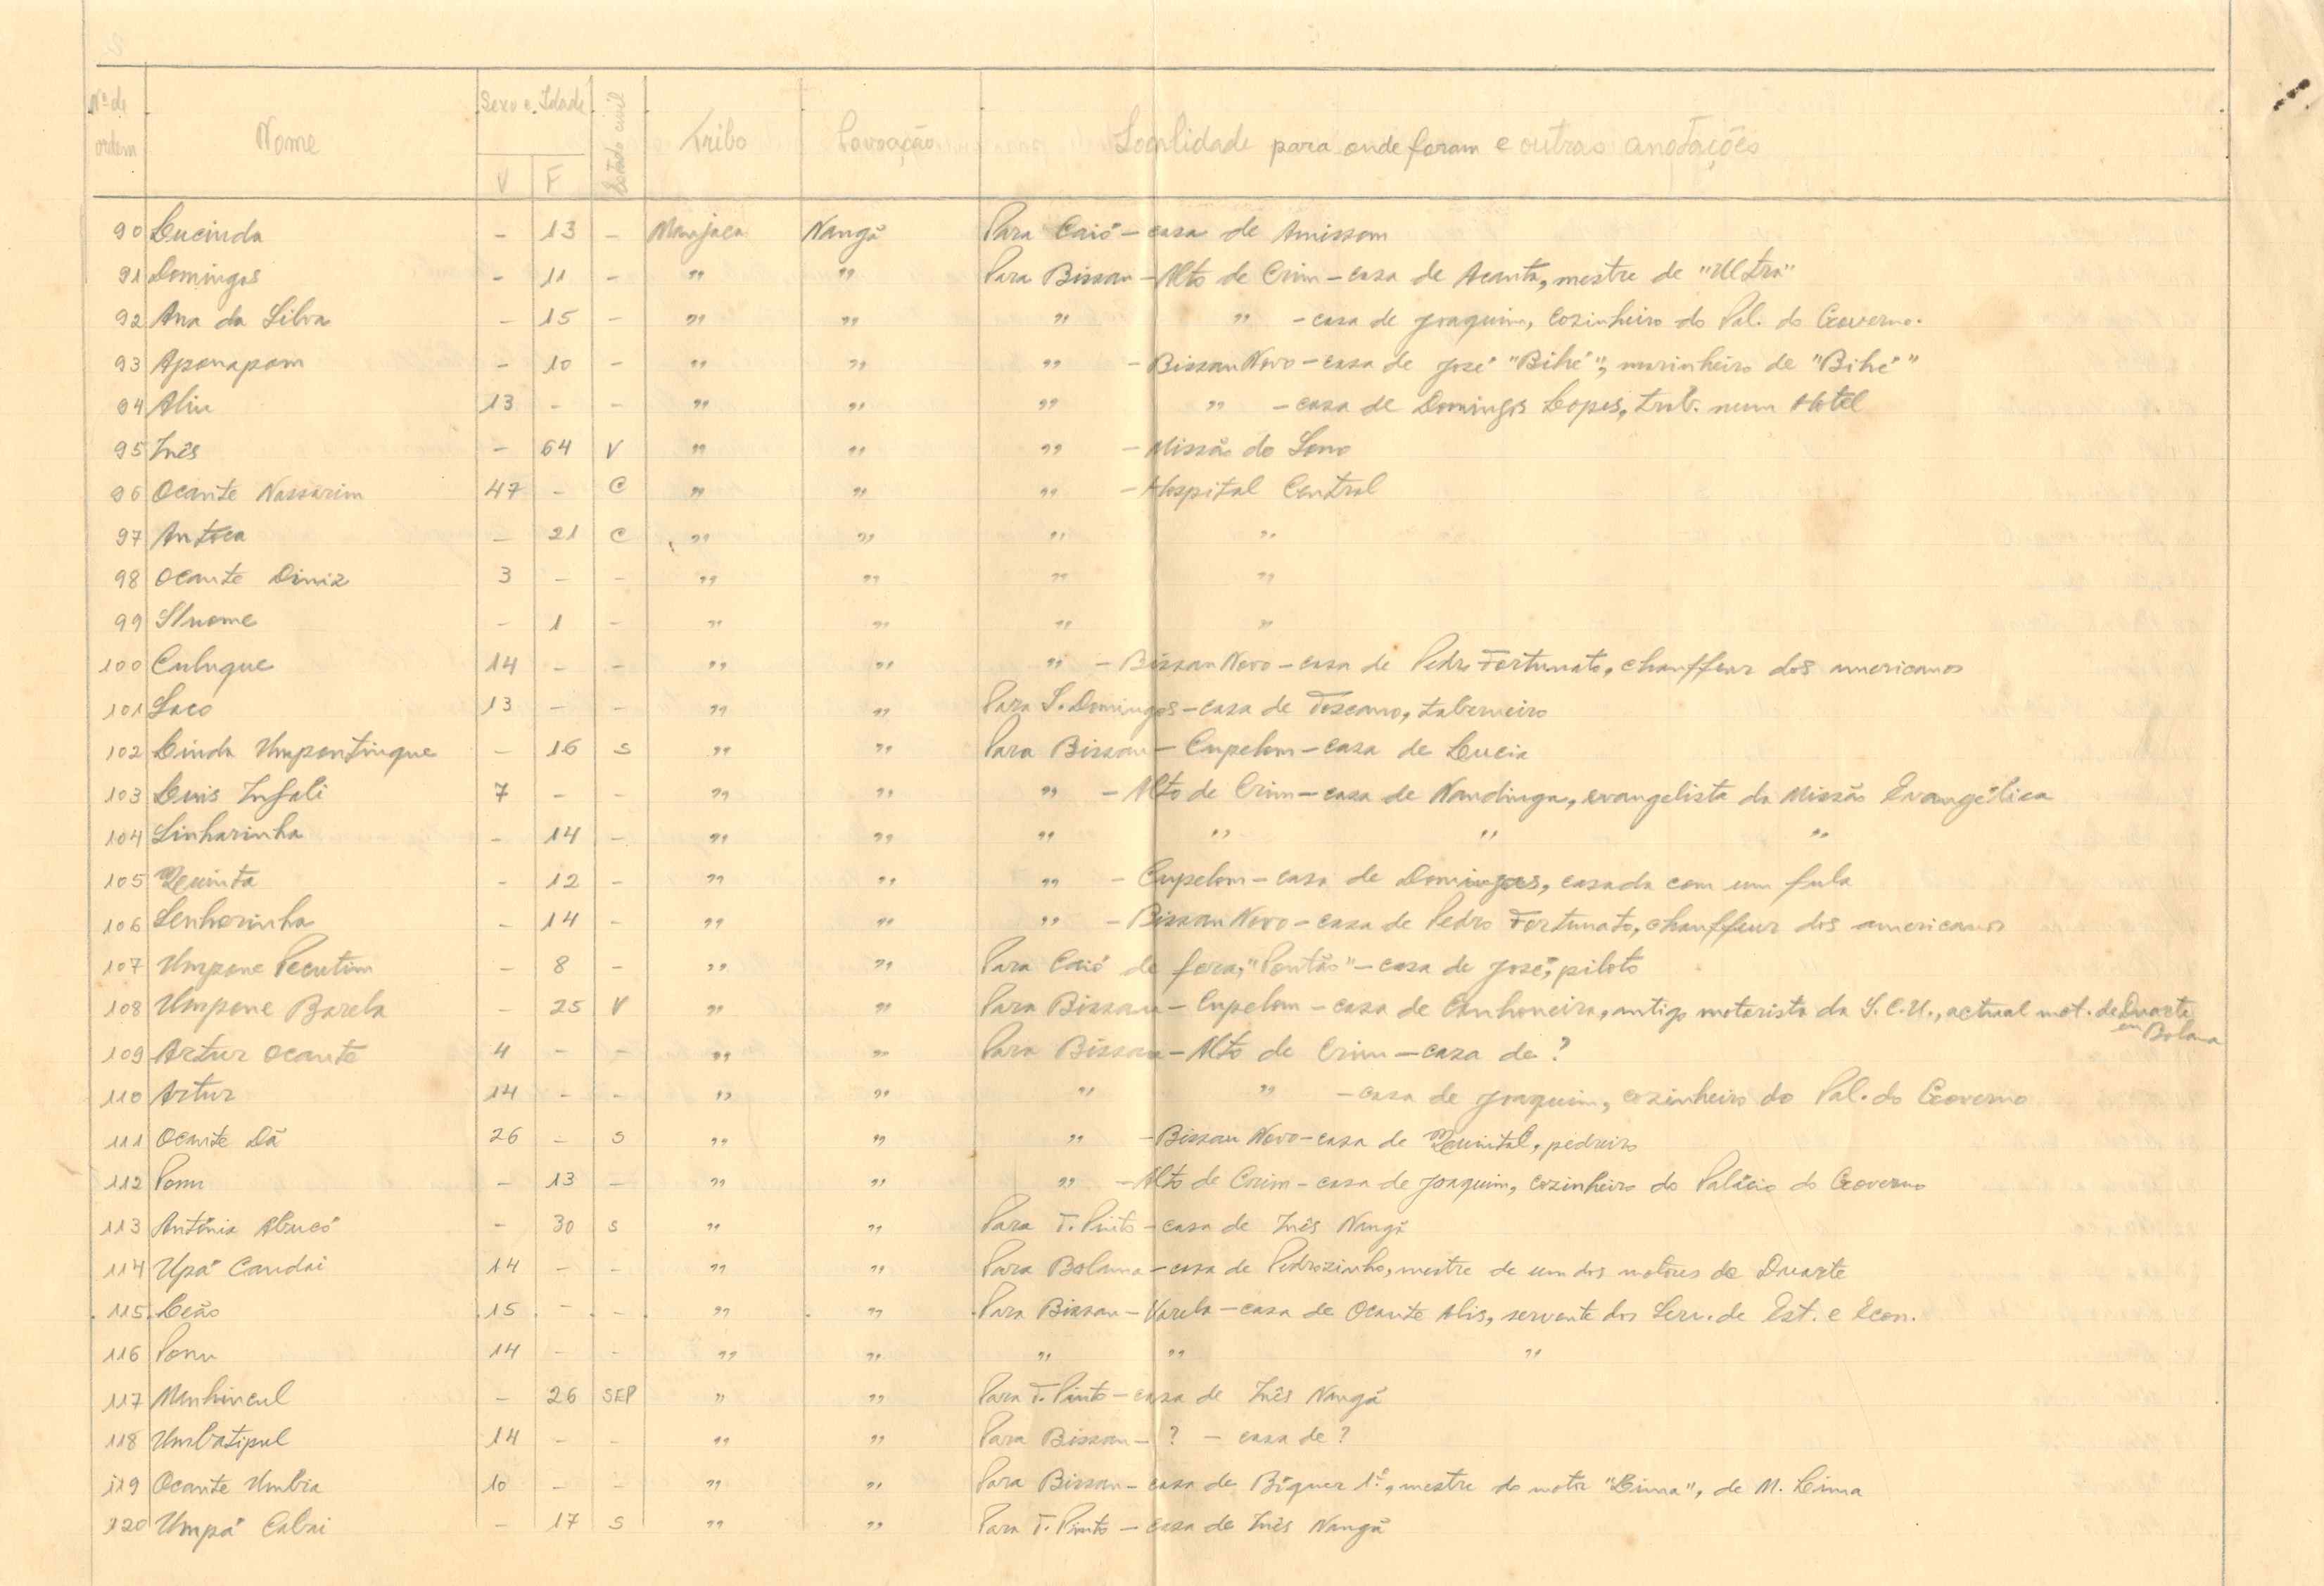 Nº de ordem Nome Sexo e Idade V F Estado civil Tribo Povoação Localidade para onde foram e outras anotações
90 Lucinda - 13 - Manjaca Nangã Para Caió - casa de Amissom
91 Domingas - 11 - " " Para Bissau - Alto de Crim - casa de Acanto, mestre de "Ultra"
92 Ana da Silva - 15 - " " " " - casa de Joaquim, cozinheiro do Pal. do Governo.
93 Aponapom - 10 - " " " - Bissau Novo - casa de José "Bihé", marinheiro de "Bihé"
94 Aliu 13 - - " " " " - casa de Domingos Lopes, trab. num Hotel
95 Inês - 64 V " " " - Missão do Sono
96 Ocante Nassarim 47 - C " " " - Hospital Central
97 Antoca - 21 C " " " "
98 Ocante Diniz 3 - - " " " "
99 S/nome - 1 - " " " "
100 Culuque 14 - - " " " - Bissau Novo - casa de Pedro Fortunato, chauffeur dos americanos
101 Saco 13 - - " " Para S. Domingos - casa de Toscano, taberneiro
102 Linda Umpontinque - 16 S " " Para Bissau - Cupelom - casa de Lucia
103 Luis Infali 7 - - " " " - Alto de Crim - casa de Nandinga, evangelista da Missão Evangélica
104 Linharinha - 14 - " " " " " "
105 Quinta - 12 - " " " - Cupelom - casa de Domingas, casada com um fula
106 Senhorinha - 14 - " " " - Bissau Novo - casa de Pedro Fortunato, chauffeur dos americanos
107 Umpone Pecutim - 8 - " " Para Caió de fora, "Pontão" - casa de José, piloto
108 Umpone Barela - 25 V " " Para Bissau - Cupelom - casa de Canhoneira, antigo motorista da S.C.U., actual mot. de Duarte em Bolama
109 Artur Ocante 4 - - " " Para Bissau - Alto de Crim - casa de ?
110 Artur 14 - - " " " " - casa de Joaquim, cozinheiro do Pal. do Governo
111 Ocante Dã 26 - S " " " - Bissau Novo - casa de Quintal, pedreiro
112 Ponu - 13 - " " " - Alto de Crim - casa de Joaquim, cozinheiro do Palácio do Governo
113 Antónia Abucó - 30 S " " Para T. Pinto - casa de Inês Nangã
114 Upá Candai 14 - - " " Para Bolama - casa de Pedrozinho, mestre de um dos motores de Duarte
115 Leão 15 - - " " Para Bissau - Varela - casa de Ocante Alis, servente dos Serv. de Est. e Econ.
116 Ponu 14 - - " " " " "
117 Munhincul - 26 SEP " " Para T. Pinto - casa de Inês Nangã
118 Umbatipul 14 - - " " Para Bissau - ? - casa de ?
119 Ocante Umbia 10 - - " " Para Bissau - casa de Biquer 1º, mestre do motor "Lima", de M. Lima
120 Umpá Cabai - 17 S " " Para T. Pinto - casa de Inês Nangã